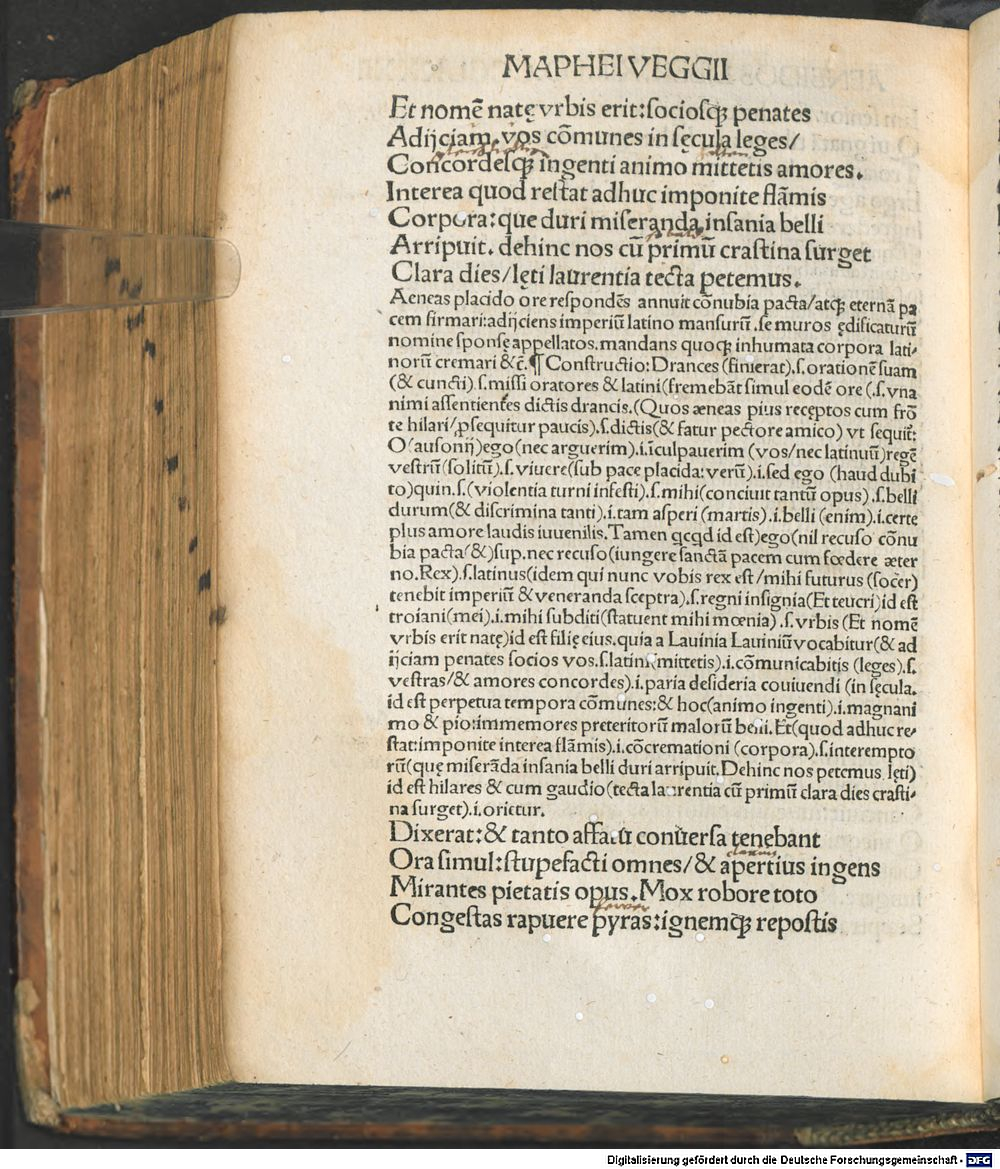 MAPHEI VEGGII
Et nomē natę vrbis erit: sociosq; penates
Adijciam. vos cōmunes in sęcula leges/
Concordesq; ingenti animo mittetis amores.
Interea quod restat adhuc imponite flāmis
Corpora: que duri miseranda insania belli
Arripuit. dehinc nos cū primū crastina surget
Clara dies/ lęti laurentia tecta petemus.
Aeneas placido ore respondēs annuit cōnubia pacta/ atq; eternā pa
cem firmari: adijciens imperiū latino mansurū. se muros ędificaturū
nomine sponsę appellatos. mandans quoq; inhumata corpora lati-
norū cremari &c̄. ¶ Constructio: Drances (finierat). s. orationē suam
(& cuncti). s. missi oratores & latini (fremebāt simul eodē ore (. s. vna
nimi assentientes dictis drancis. (Quos æneas pius recęptos cum frō
te hilari/ ꝓsequitur paucis). s. dictis (& fatur pectore amico) vt sequit̄:
O (ausonij) ego (nec arguerim). i. īculpauerim (vos/ nec latinuū) regē
vestrū (solitū). s. viuere (sub pace placida: verū). i. sed ego (haud dubi
to) quin. s. (violentia turni infesti). s. mihi (conciuit tantū opus). s. belli
durum (& discrimina tanti). i. tam asperi (martis). i. belli (enim). i. certe
plus amore laudis iuuenilis. Tamen qcqd id est) ego (nil recuso cōnu
bia pacta (&) sup. nec recuso (iungere sanctā pacem cum fœdere æter
no. Rex). s. latinus (idem qui nunc vobis rex est/ mihi futurus (socer)
tenebit imperiū & veneranda sceptra). s. regni insignia (Et teucri) id est
troiani (mei). i. mihi subditi (statuent mihi mœnia). s. vrbis (Et nomē
vrbis erit natę) id est filię eius. quia a Lauinia Lauiniū vocabitur (& ad
ijciam penates socios vos. s. latini (mittetis). i. cōmunicabitis (leges). s.
vestras/ & amores concordes). i. paria desideria couiuendi (in sęcula.
id est perpetua tempora cōmunes: & hoc (animo ingenti). i. magnani
mo & pio: immemores preteritorū malorū belli. Et (quod adhuc re-
stat: imponite interea flāmis). i. cōcremationi (corpora). s. interempto
rū (quę miserāda insania belli duri arripuit. Dehinc nos petemus lęti)
id est hilares & cum gaudio (tecta laurentia cū primū clara dies crasti-
na surget). i. orietur.
Dixerat: & tanto affatu conuersa tenebant
Ora simul: stupefacti omnes/ & apertius ingens
Mirantes pietatis opus. Mox robore toto
Congestas rapuere pyras: ignemq; repostis
Digitalisierung gefördert durch die Deutsche Forschungsgemeinschaft - DFG